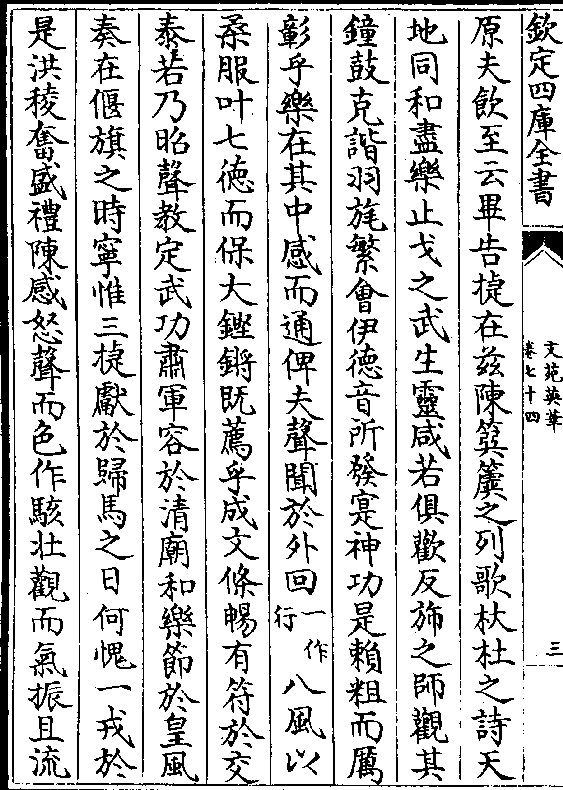 欽定四庫全書
文苑英華
卷七十四
三
原夫飲至云畢告捷在兹陳簨簴之列歌杕杜之詩天
地同和盡樂止戈之武生靈咸若俱歡反斾之師觀其
鐘鼓克諧羽旄繁會伊德音所發寔神功是賴粗而厲
彰乎樂在其中感而通俾夫聲聞於外回一作行八風以
柔服叶七徳而保大鏗鏘既薦乎成文條暢有符於交
泰若乃昭聲教定武功肅軍容於清廟和樂節於皇風
奏在偃旗之時寧惟三捷獻於歸馬之日何愧一戎於
是洪稜奮盛禮陳感怒聲而色作駭壯觀而氣振且流